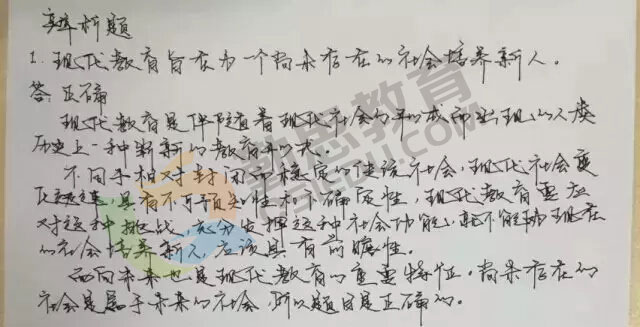 辨析题
1. 现代教育旨在为一个尚未存在的社会培养新人。
答: 正确
现代教育是伴随着现代社会的形成而出现的人类
历史上一种崭新的教育形式。
不同于相对封闭而稳定的传统社会,现代社会变
化迅速,具有不可预知性和不确定性,现代教育要应
对这种挑战,充分发挥这种社会功能,就不能为现在
的社会培养新人,应该具有前瞻性。
面向未来也是现代教育的重要特征,尚未存在的
社会是属于未来的社会,所以题目是正确的。
勤思教育